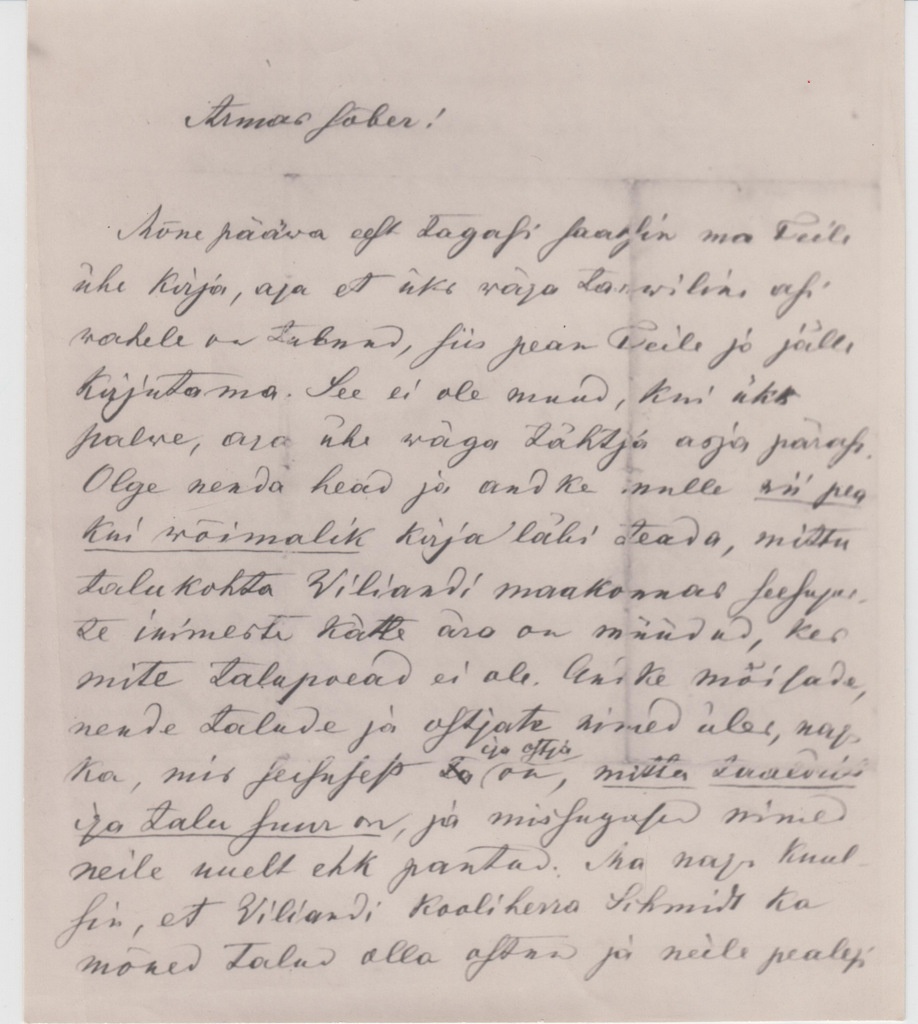 Armas sõber!
Mõne pääwa eest tagasi saatsin ma Teile
ühe kirja, aga et üks wäga tarwiline asi
wahele on tulnud, siis pean Teile jo jälle
kirjutama. See ei ole muud, kui üks
palwe, aga ühe wäga tähtja asja pärast.
Olge nenda head ja andke mulle nii pea
kui wõimalik kirja läbi teada, mittu
talukohta Viliandi maakonnas seesugus-
te inimeste kätte ära on müüdud, kes
mite talupoead ei ole. Andke mõisade,
nende talude ja ostjate nimed üles, nago
ka, mis seisusest iga ostja on, mittu taaldrit
iga talu suur on, ja missugused nimed
neile uuelt ehk pantud. Ma nago kuul-
sin, et Viliandi kooliherra Schmidt ka
mõned talud olla ostnu ja neile pealegi